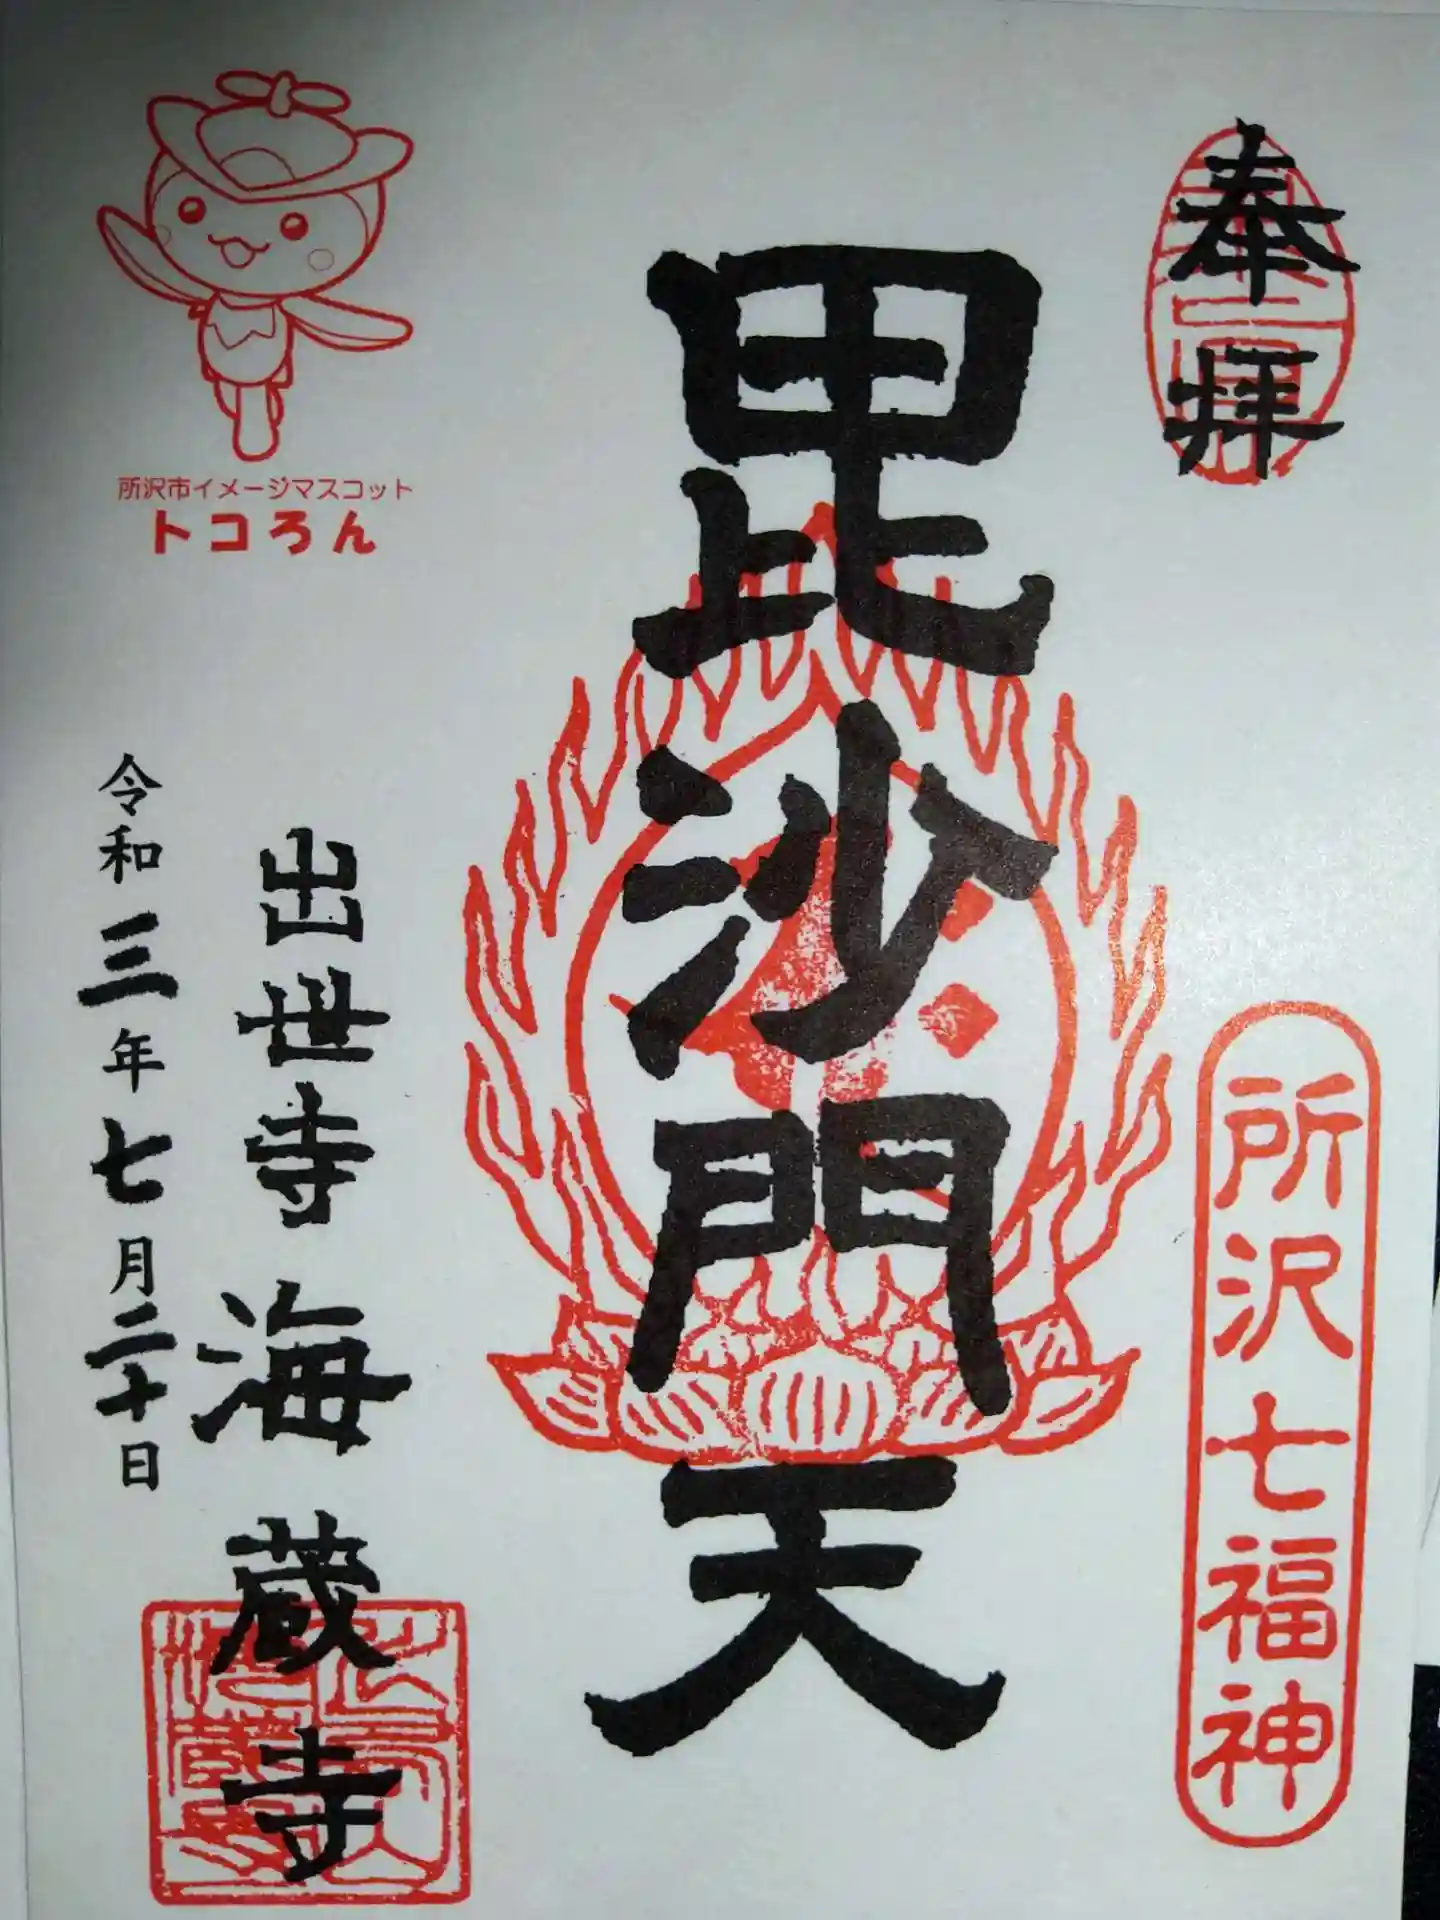 奉拝
所沢七福神
毘沙門天
所沢市イメージマスコット
トコろん
出世寺 海蔵寺
令和三年七月二十日